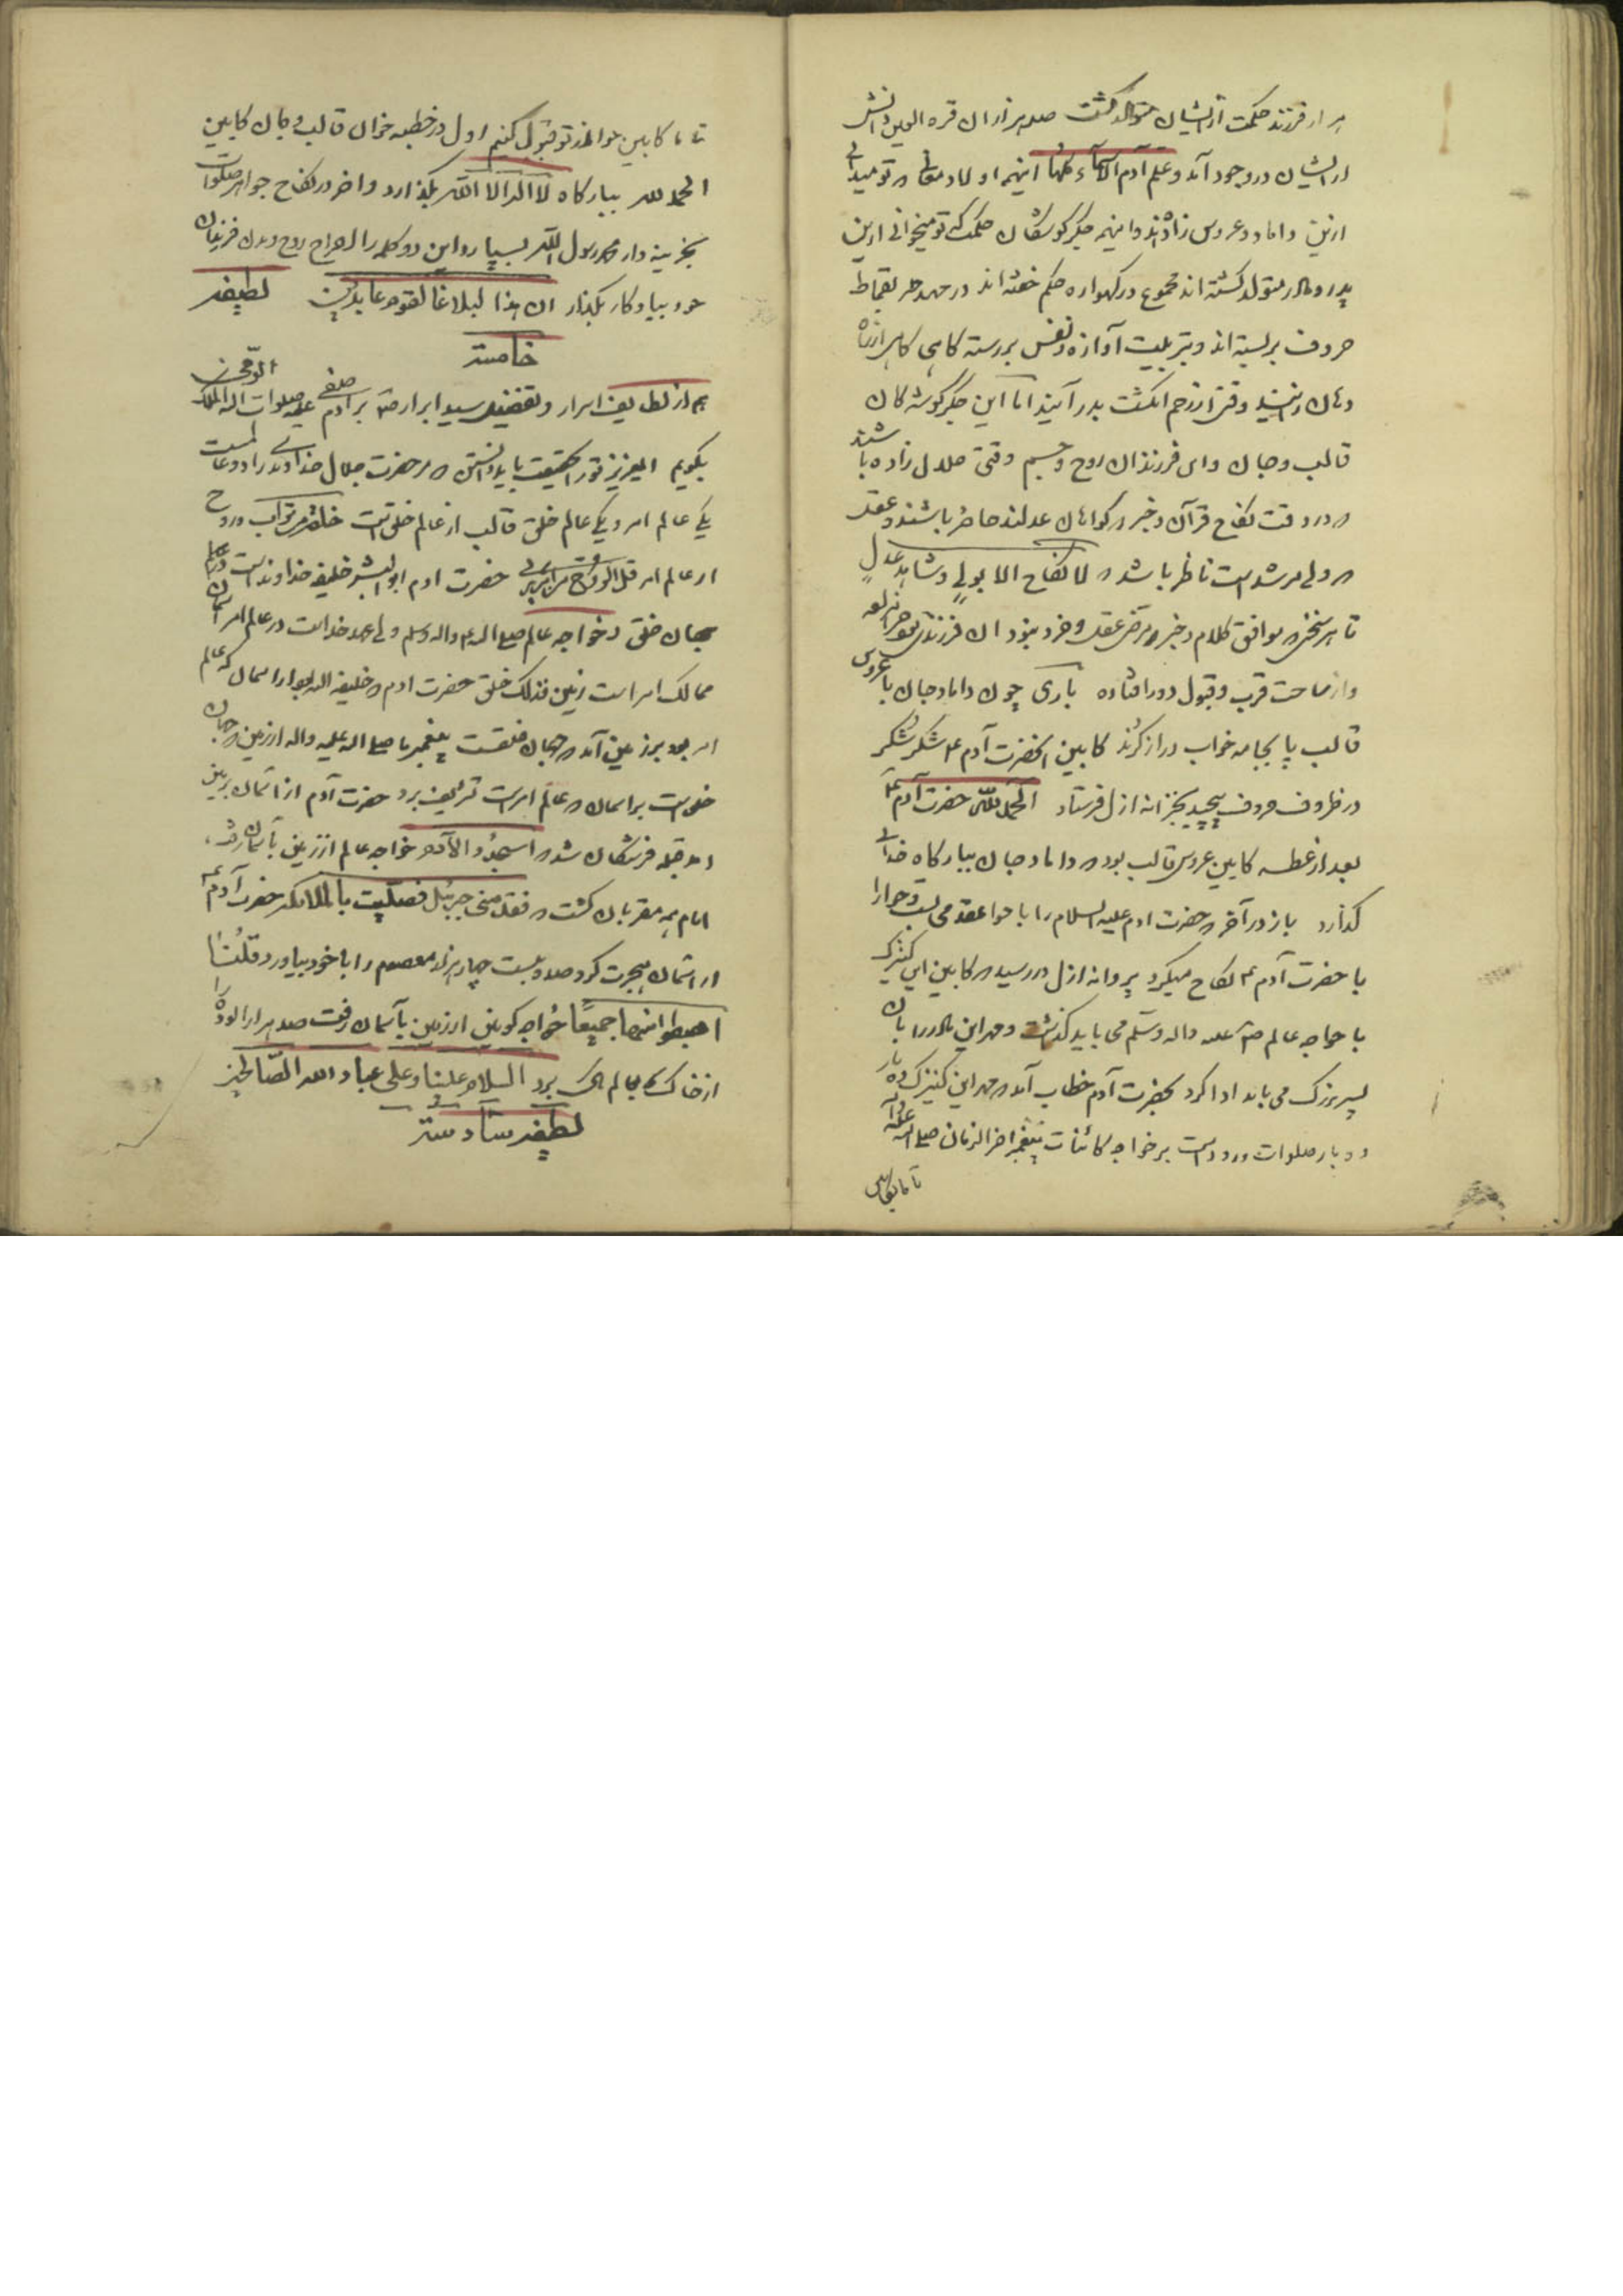 هزار فرزند حکمت از ایشان متوالد کشت صد هزاران قره العین دانش
از ایشان در وجود آمد و علم آدم الاسماء کلها اینهمه اولاد معانی که تو میدانی
ازین داماد و عروس زاده‌اند و اینهمه جکرکوشکان حکمت که تو میخوانی ازین
پدر و مادر متولد کشته اند مجموع در کهواره حکم خفته اند در مهد بقماط
حروف بربسته اند و بتربیت آوازه و نفس بررسته کاهی کاهی از راه
دهان و وقتی از زخم انکشت بدر آیند اما این جکرکوشه کان
قالب و جان و این فرزندان روح و جسم وقتی حلال زاده باشند
که در وقت نکاح قرآن و خبر که کواهان عدلند حاضر باشند و عقل
که ولی مرشد است ناظر باشد که لا نکاح الا بولی و شاهد عدل
تا هر سخن که موافق کلام و خبر و مرتضی عقل و خرد نبود آن فرزند
و از ساحت قرب و قبول دور افتاده باری چون داماد جان با عروس
قالب پا بجامه خواب دراز کردند کابین حضرت آدم ع شکر شکر
در ظروف حروف پیچید بخزانه ازل فرستاد الحمد لله حضرت آدم ع
بعد از عطسه کابین عروس قالب بود که داماد جان ببارکاه خدائی
کذارد باز در آخر که حضرت ادم علیه السلام را با حوا عقد می بست و حوا را
با حضرت آدم ع نکاح میکرد پروانه ازل در رسید که کابین این کنیزک
با خواجه عالم صلی علیه واله وسلم می باید کذشت و مهر این مادر را بآن
پسر بزرک می باید ادا کرد بحضرت آدم خطاب آمد که مهر این کنیزک ده بار
دو بار صلوات و درود است بر خواجه کائنات پیغمبر اخر الزمان صلی الله علیه واله
تا ما کابین
تا ما کابین حوا از تو قبول کنیم اول در خطبه خوان قالب و جان کابین
الحمد لله ببارکاه لا اله الا الله بکذارد و اخر در نکاح حوا مهر صلوات
بخزینه دار محمد رسول الله بسپارد و این دو کلمه را ازدواج روح و بدن فرزندان
خود بیاد کار بکذار ان هذا لبلاغا لقوم عابدین لطیفه
خامسه
هم از لطایف اسرار و تفضیل سید ابرار ص بر آدم صفی علیه صلوات الله الملک الرحمن
بکویم ای عزیز تو را حقیقت باید دانستن که مر حضرت جلال خداوندی را دو عالمست
یکی عالم امر و یکی عالم خلق قالب از عالم خلق است خلقه من تراب و روح
از عالم امر قل الروح من امر ربی حضرت ادم ابو البشر خلیفه خداوند است در عالم
جهان خلق و خواجه عالم صلی الله ع واله وسلم ولی عهد خداست در عالم امر آسمان
ممالک امر است زمین فذلک خلق حضرت ادم که خلیفه اله بود از اسمان که عالم
امر بود بر زمین آمد که جهان خلقست پیغمبر ما صلی الله علیه واله از زمین که جهان
خلق است بر اسمان که عالم امر است تشریف برد حضرت آدم از آسمان بزمین
امد قبله فرشتکان شد که اسجدوا لآدم خواجه عالم از زمین بآسمان رفت
امام همه مقربان کشت که فقدمنی جبرئیل فصلیت بالملائکه حضرت آدم ع
از آسمان هجرت کرد صد و بیست چهار هزار معصوم را با خود بیاورد قلنا
اهبطوا منها جمیعا خواجه کونین از زمین بآسمان رفت صد هزار آلوده را
از خاک بعالم پاک برد السلام علینا و علی عباد الله الصالحین
لطیفه سادسه